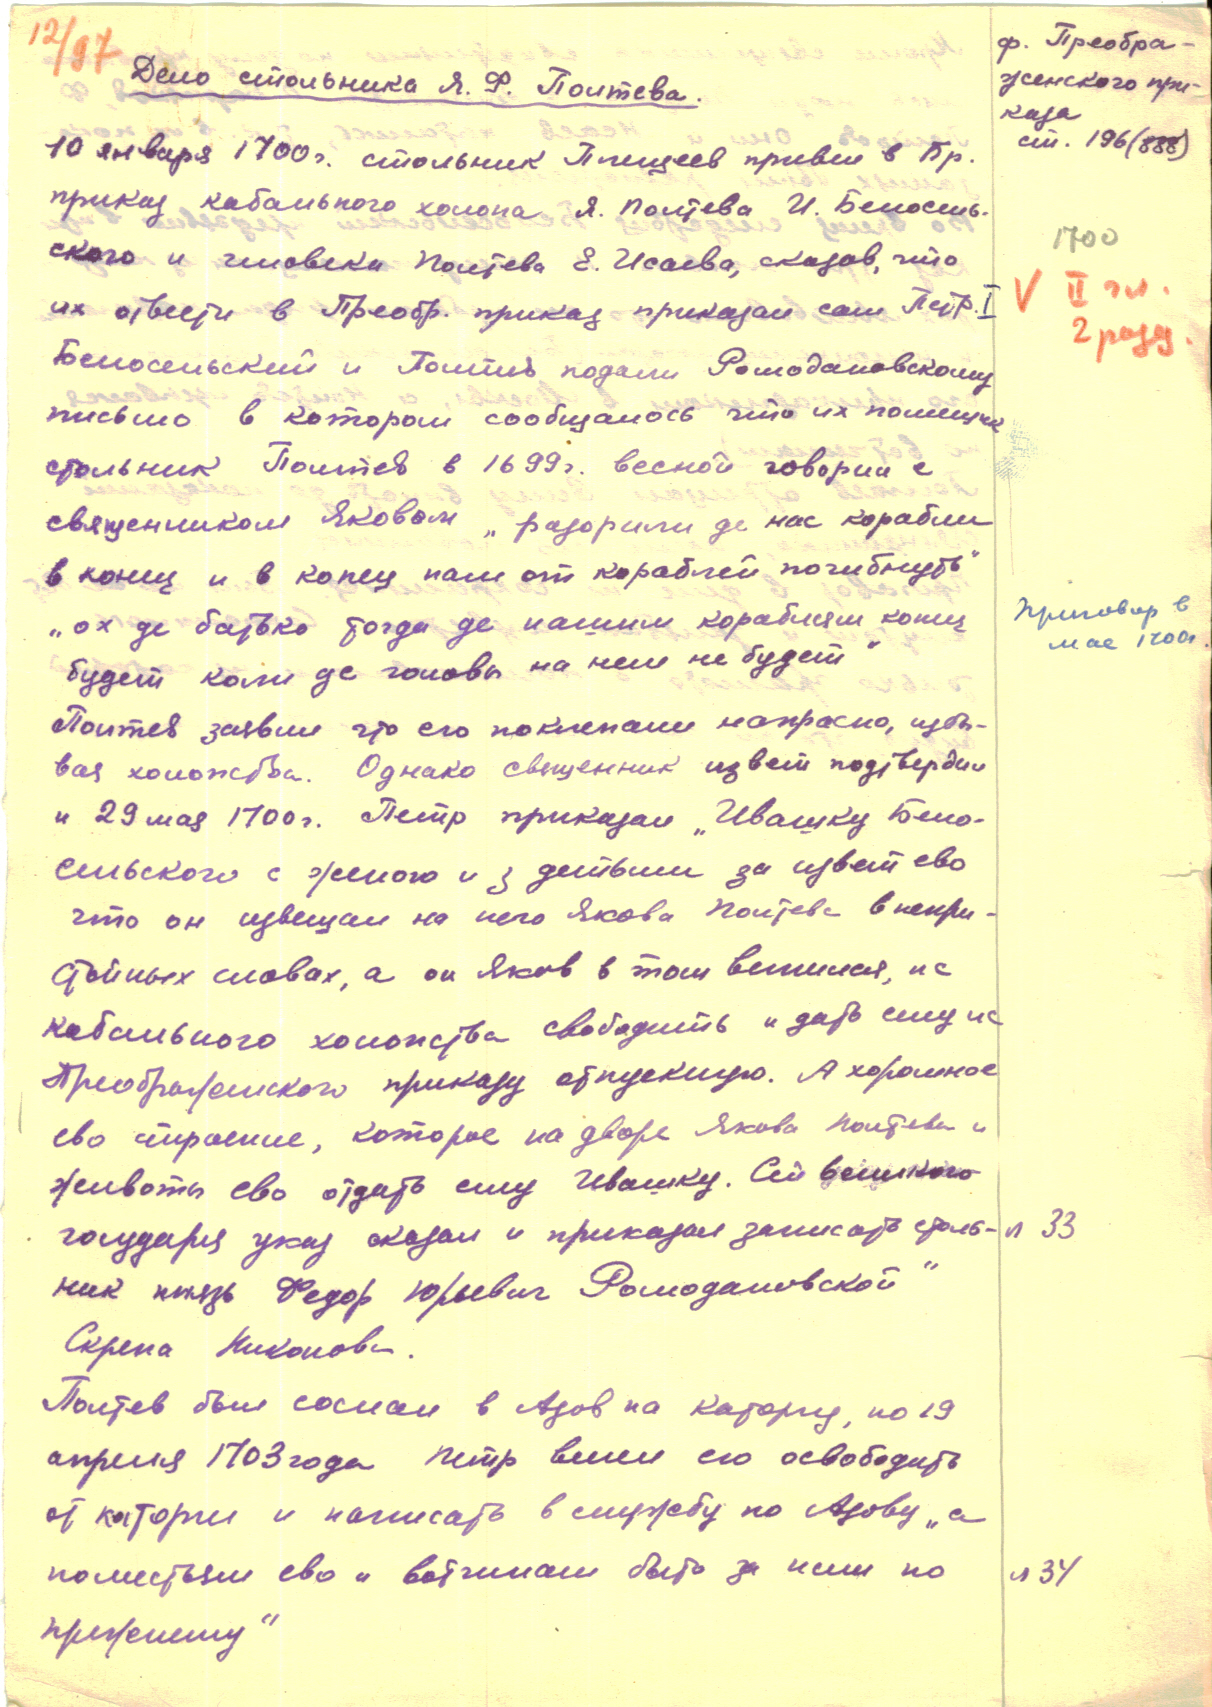 12/97
Дело стольника Я. Ф. Полтева.
10 января 1700 г. стольник Плещеев привел в Пр.
приказ кабального холопа Я. Полтева И. Белосель-
ского и человека Полтева Е. Исаева, сказав, что
их отвести в Преобр. приказ приказал сам Петр. I
Белосельский и Полтев подали Ромодановскому
письмо в котором сообщалось что их помещик
стольник Полтев в 1699 г. весной говорил с
священником Яковом „разорили де нас корабли
в конец и в конец нам от кораблей погибнуть"
„ох де батько тогда де нашим кораблям конец
будет коли де головы на нем не будет"
Полтев заявил что его поклепали напрасно, избы-
вая холопства. Однако священник извет подтвердил
и 29 мая 1700 г. Петр приказал „Ивашку Бело-
сельского с женою и з детьми за извет ево
что он извещал на него Якова Полтева в непри-
стойных словах, а он Яков в том винился, ис
кабального холопства свободить и дать ему ис
Преображенского приказу отпускную. А хоромное
ево строение, которое на дворе Якова Полтева и
животы ево отдать ему Ивашку. Сей великого
государя указ сказал и приказал записать столь-
ник князь Федор Юрьевич Ромодановской"
Скрепа Никонова.
Полтев был сослан в Азов на каторгу, но 19
апреля 1703 года Петр велел его освободить
от каторги и написать в службу по Азову „а
поместьям ево и вотчинам быть за ним по
прежнему"
ф. Преобра-
женского при-
каза
ст. 196 (888)
1700
V II гл.
2 разд.
Приговор в
мае 1700г.
л 33
л 34